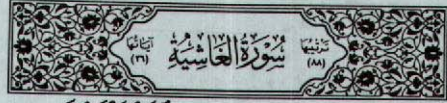 ترتيبها (٨٨) سُورَةُ الْغَاشِيَةِ آياتها (٢٦)